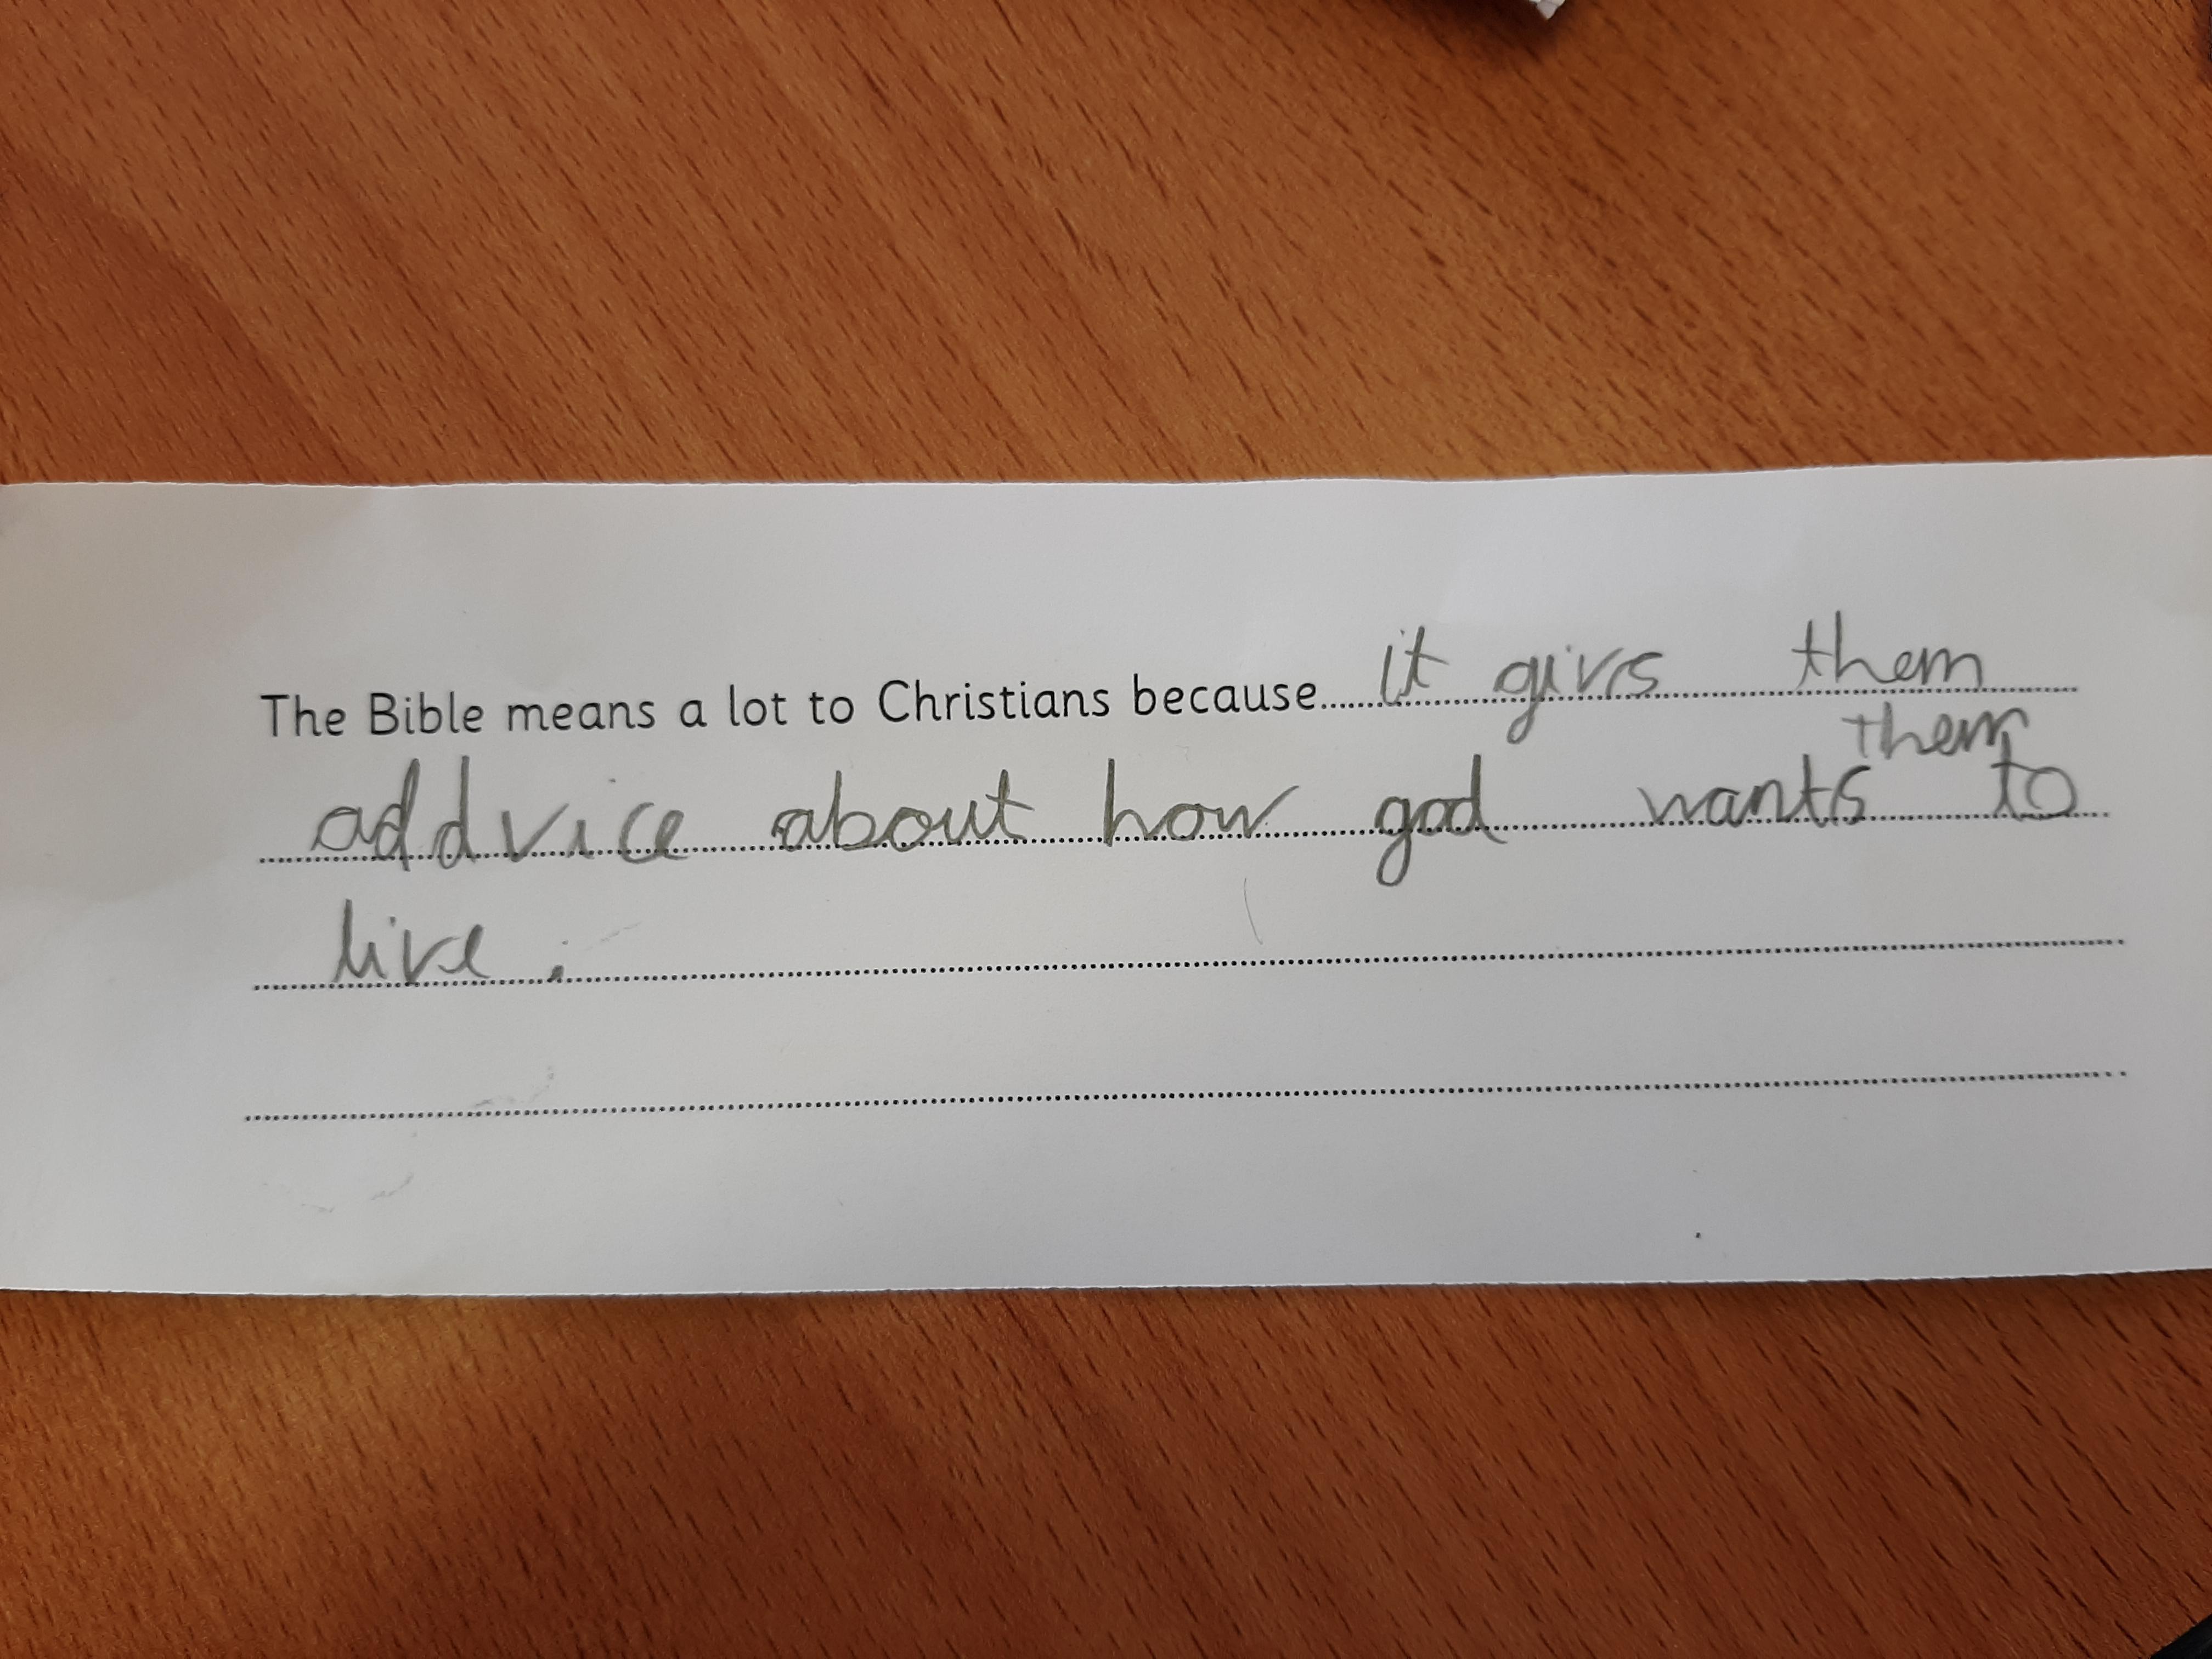 The Bible means a lot to Christians because.....it givs them
them
addvice about how god wants to
live.